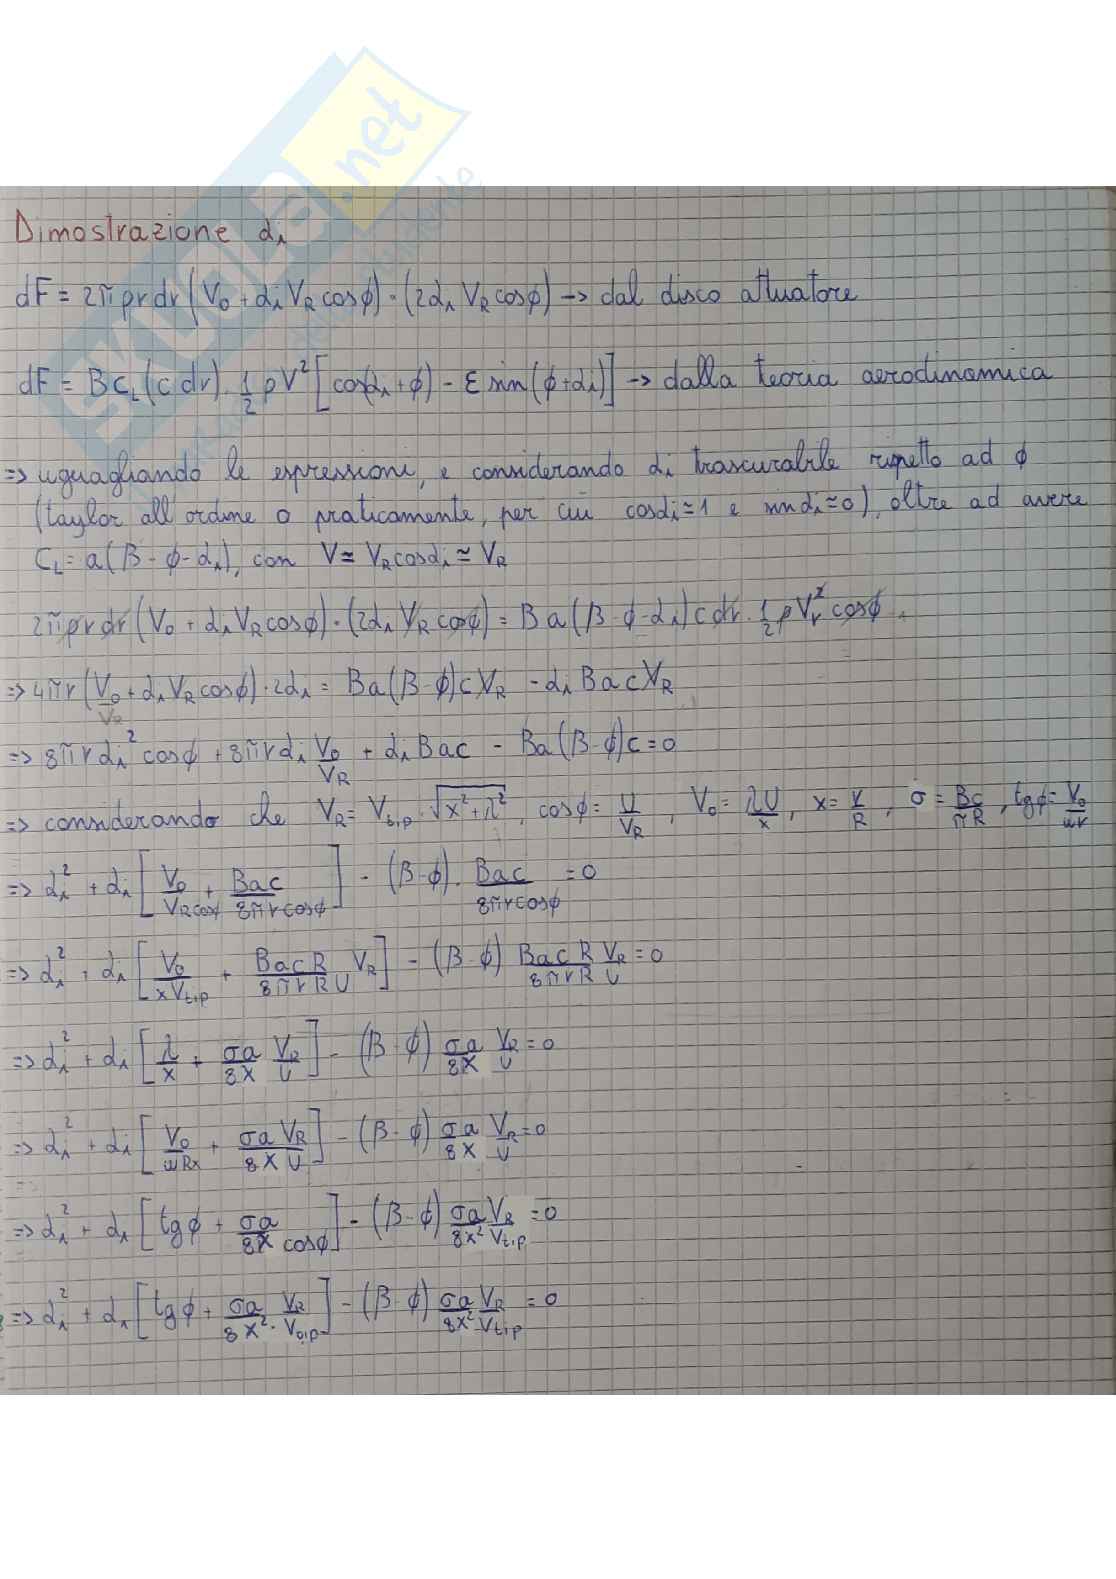 SKUOLA.net
Dimostrazione αi
dF = 2πρrdr(V0 + αi VR cosϕ)·(2αi VR cosϕ) → dal disco attuatore
dF = B cL (c dr)·1/2 ρV²[cos(αi+ϕ) − ε sin(ϕ+αi)] → dalla teoria aerodinamica
⇒ uguagliando le espressioni, e considerando αi trascurabile rispetto ad ϕ
(taylor all'ordine 0 praticamente, per cui cosαi≃1 e sinαi≃0), oltre ad avere
CL = a(β−ϕ−αi), con V ≃ VR cosαi ≃ VR
2πρrdr(V0 + αi VR cosϕ)·(2αi VR cosϕ) = B a(β−ϕ−αi) c dr·1/2 ρVr² cosϕ
⇒ 4πr(V0/VR + αi VR cosϕ)·2αi = Ba(β−ϕ)c VR − αi Bac VR
⇒ 8πrαi² cosϕ + 8πrαi V0/VR + αi Bac − Ba(β−ϕ)c = 0
⇒ considerando che VR = Vtip·√(x²+λ²), cosϕ = U/VR, V0 = λU/x, x = r/R, σ = Bc/πR, tgϕ = V0/ωr
⇒ αi² + αi [V0/(VR cosϕ) + Bac/(8πr cosϕ)] − (β−ϕ)·Bac/(8πr cosϕ) = 0
⇒ αi² + αi [V0/(x Vtip) + BacR/(8πrRU) VR] − (β−ϕ) BacR/(8πrR) VR/U = 0
⇒ αi² + αi [λ/x + σa/8x VR/U] − (β−ϕ) σa/8x VR/U = 0
⇒ αi² + αi [V0/ωRx + σa/8x VR/U] − (β−ϕ) σa/8x VR/U = 0
⇒ αi² + αi [tgϕ + σa/(8x cosϕ)] − (β−ϕ) σa/8x² VR/Vtip = 0
⇒ αi² + αi [tgϕ + σa/8x² · VR/Vtip] − (β−ϕ) σa/8x² VR/Vtip = 0